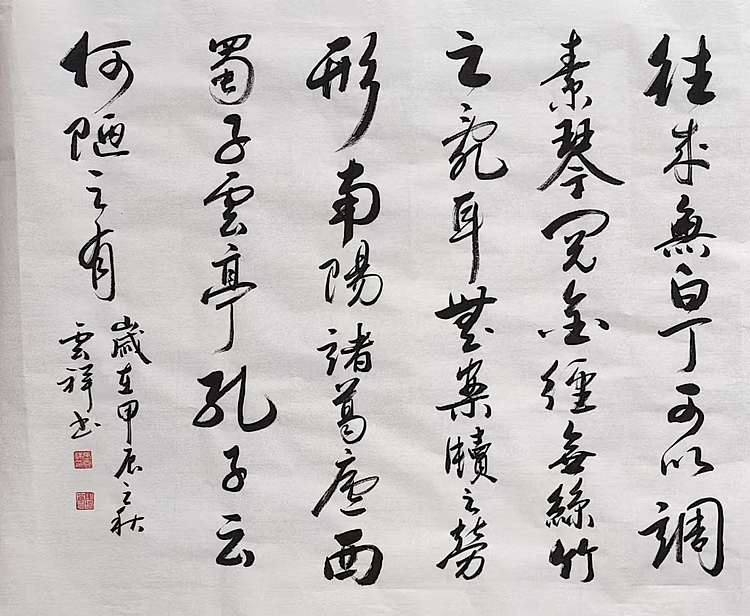 往來無白丁可以調
素琴閱金經無絲竹
之亂耳無案牘之勞
形南陽諸葛廬西
蜀子雲亭孔子云
何陋之有
歲在甲辰之秋
雲祥書